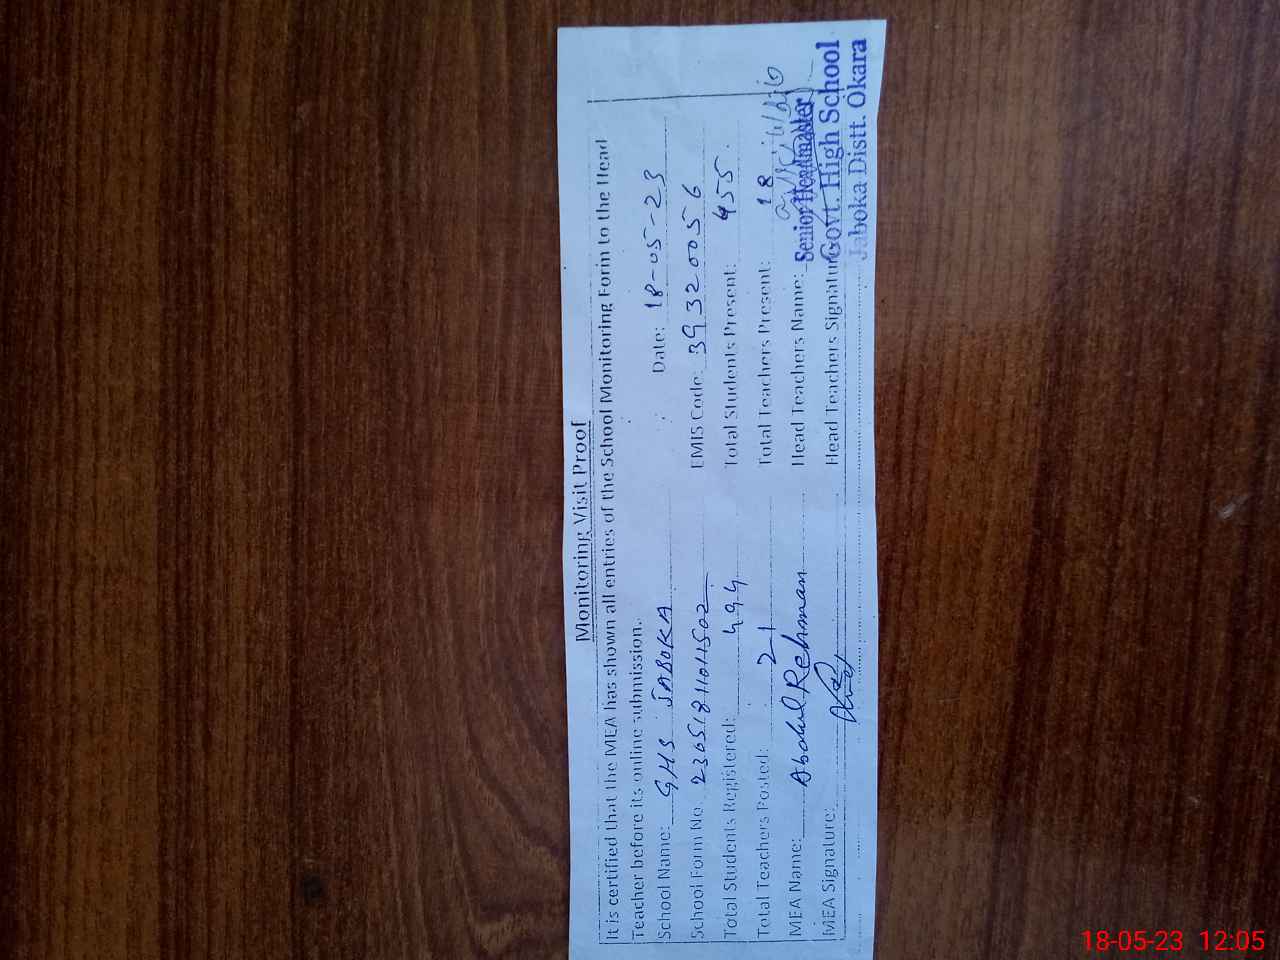 Monitoring Visit Proof
It is certified that the MEA has shown all entries of the School Monitoring Form to the Head
Teacher before its online submission.
School Name: GHS JABOKA Date: 18-05-23
School Form No. EMIS Code: 39320056
Total Students Registered: 494 Total Students Present: 455
Total Teachers Posted: 21 Total Teachers Present: 18
MEA Name: Abdul Rehman Head Teachers Name:
MEA Signature: Head Teachers Signature
Senior Headmaster
Govt. High School
Jaboka Distt. Okara
18-05-23 12:05